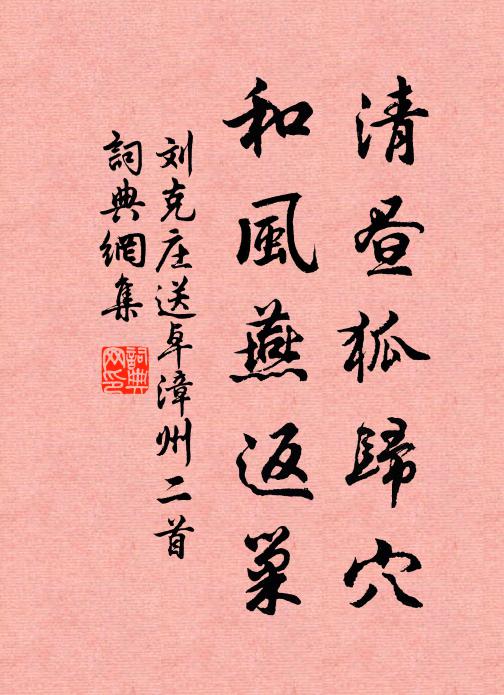 清昼狐歸穴
和風燕返巢
刘克庄送卓漳州二首
詞典網集
詞典网印